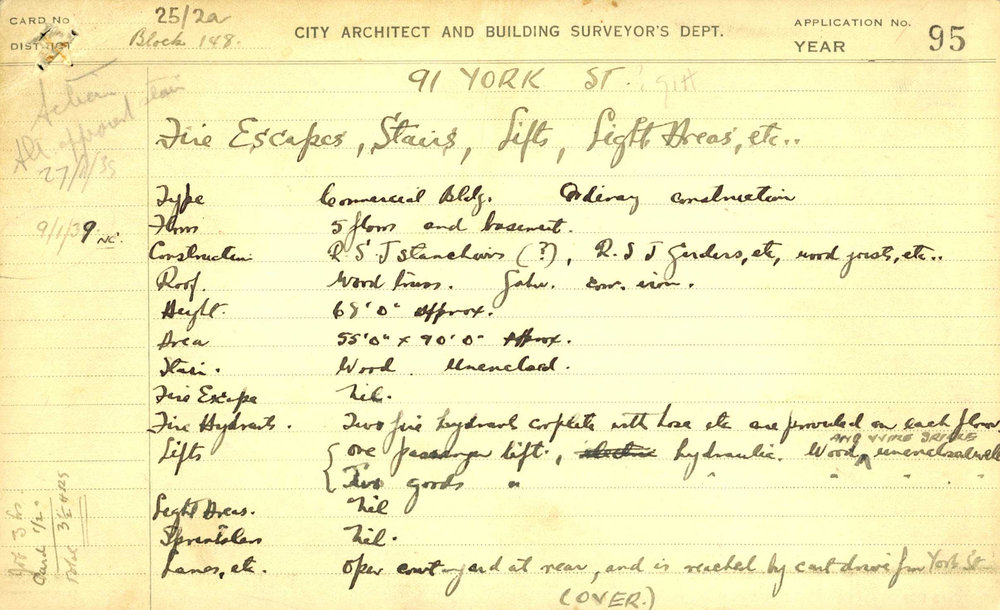 CARD No 25/2a
DISTRICT Block 148.
CITY ARCHITECT AND BUILDING SURVEYOR'S DEPT.
APPLICATION No.
YEAR 95
91 YORK ST.
Action
Alt. approved
27/ /39
Fire Escapes, Stairs, Lifts, Light Areas, etc..
Type Commercial Bldg. Ordinary construction
9/1/39 NC. Floors 5 floors and basement.
Construction R.S.J Stanchions (?), R.S.J Girders, etc, wood joists, etc..
Roof. Wood truss. Galv. corr. iron.
Height. 68'0" approx.
Area 55'0" x 90'0" approx.
Stair. Wood. Unenclosed.
Fire Escape Nil.
Fire Hydrants. Two fire hydrants complete with hose etc are provided on each floor
AND WIRE GRILLE
Lifts { one passenger lift, electric hydraulic. Wood unenclosed well
{ Two goods " " " "
Light Areas. Nil
Sprinklers Nil.
Lanes, etc. Open court-yard at rear, and is reached by cart drive from York St
(OVER.)
Job 3 hrs
Card 1/2.
Total 3½ HRS